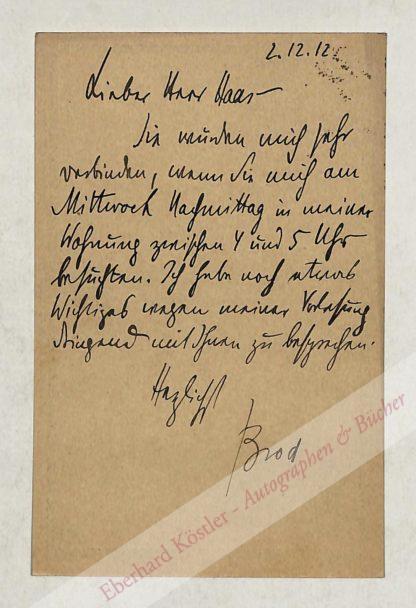 2.12.12
Lieber Herr Haas –
Sie würden mich sehr
verbinden, wenn Sie mich am
Mittwoch Nachmittag in meiner
Wohnung zwischen 4 und 5 Uhr
besuchten. Ich habe noch etwas
Wichtiges wegen meiner Vorlesung
dringend mit Ihnen zu besprechen.
Herzlichst
Brod
Eberhard Köstler - Autographen & Bücher